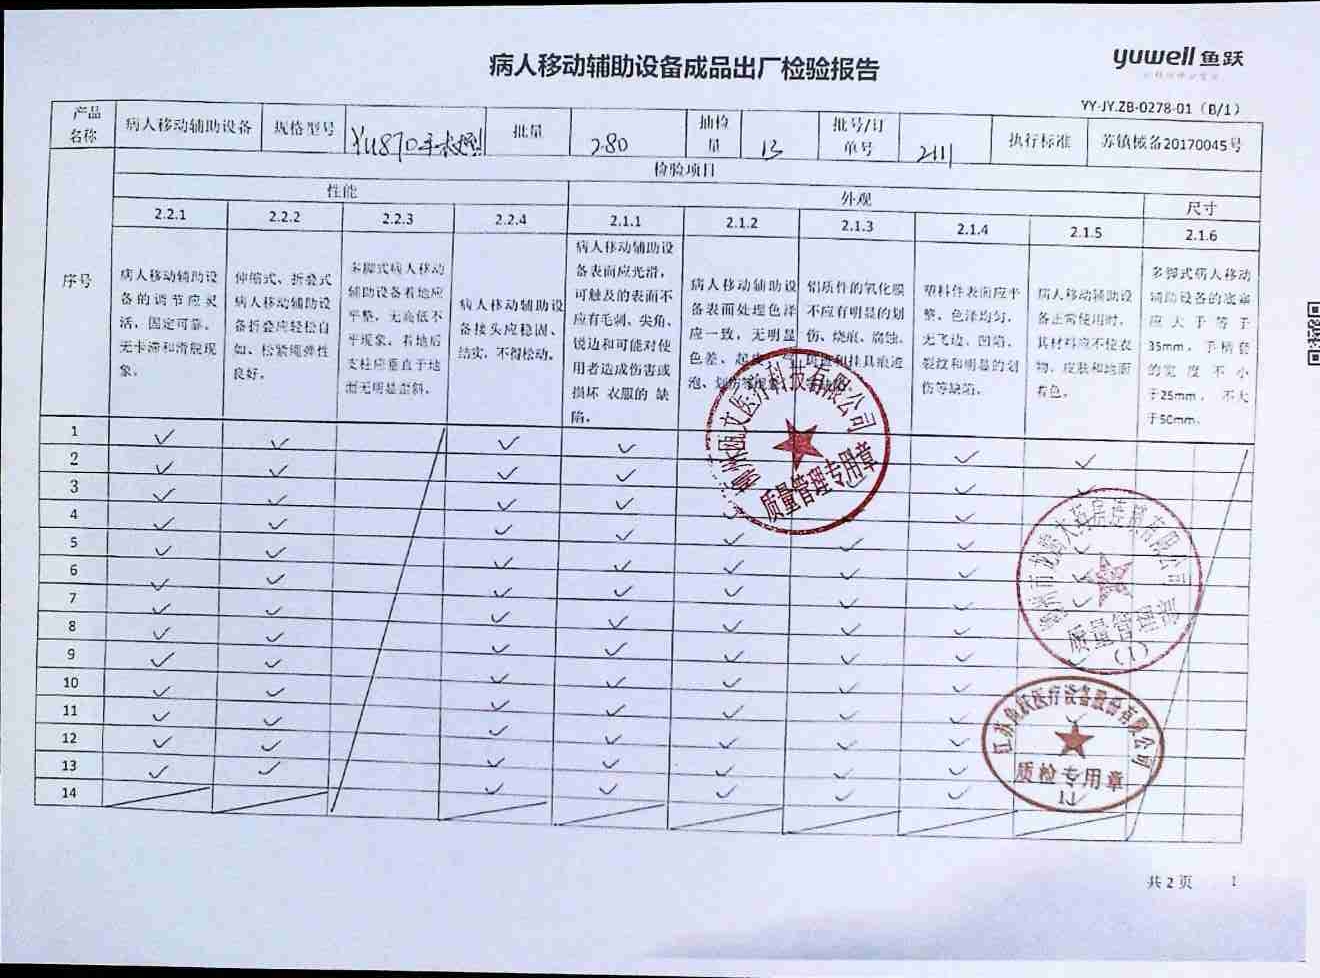 yuwell 鱼跃
病人移动辅助设备成品出厂检验报告
YY-JY.ZB-0278-01（B/1）
产品
名称
病人移动辅助设备
规格型号
YU870
批量
280
抽检
量
13
批号/订
单号
2111
执行标准
苏镇械备20170045号
检验项目
性能
外观
尺寸
序号
2.2.1
2.2.2
2.2.3
2.2.4
2.1.1
2.1.2
2.1.3
2.1.4
2.1.5
2.1.6
病人移动辅助设
备的调节应灵
活，固定可靠，
无卡滞和滑脱现
象。
伸缩式、折叠式
病人移动辅助设
备折叠应轻松自
如、松紧绳弹性
良好。
多脚式病人移动
辅助设备着地应
平整，无高低不
平现象，着地后
支柱应垂直于地
面无明显歪斜。
病人移动辅助设
备接头应稳固、
结实，不得松动。
病人移动辅助设
备表面应光滑，
可触及的表面不
应有毛刺、尖角、
锐边和可能对使
用者造成伤害或
损坏 衣服的 缺
陷。
病人移动辅助设
备表面处理色泽
应一致，无明显
色差、起
泡、划伤等
铝质性的氧化膜
不应有明显的划
伤、烧痕、腐蚀、
和挂具痕迹
塑料件表面应平
整、色泽均匀，
无飞边、凹陷、
裂纹和明显的划
伤等缺陷。
病人移动辅助设
备正常使用时，
其材料应不使衣
物、皮肤和地面
着色。
多脚式病人移动
辅助设备的底端
应大于等于
35mm，手柄套
的宽度不小
于25mm，不大
于50mm。
1
2
3
4
5
6
7
8
9
10
11
12
13
14
医疗科技有限公司
质量管理专用章
大药房连锁有限公司
质量管
（1）
江苏鱼跃医疗设备股份有限公司
质检专用章
共 2 页 1